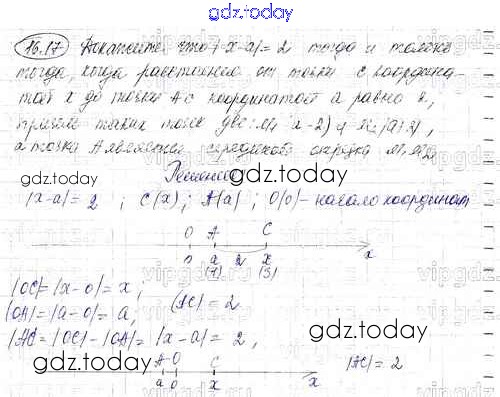 gdz.today
gdz.today
16.17 Докажите, что |x-a|= 2 тогда и только
тогда, когда расстояние от точки с координа-
той x до точки A с координатой a равно 2,
причём таких точек две:
а точка A является серединой отрезка
Решение
gdz.today
gdz.today
|x-a|= 2 ; C(x); A(a) ; O(o) - начало координат
O A C
0 a 2 x
(1) (3) x
|OC|=|x-0|= x;
|OA|=|a-0|=a, |AC| = 2
|AC|= |OC|-|OA|= |x-a|= 2 ,
gdz.today
gdz.today
A O C |AC| = 2
a o x x